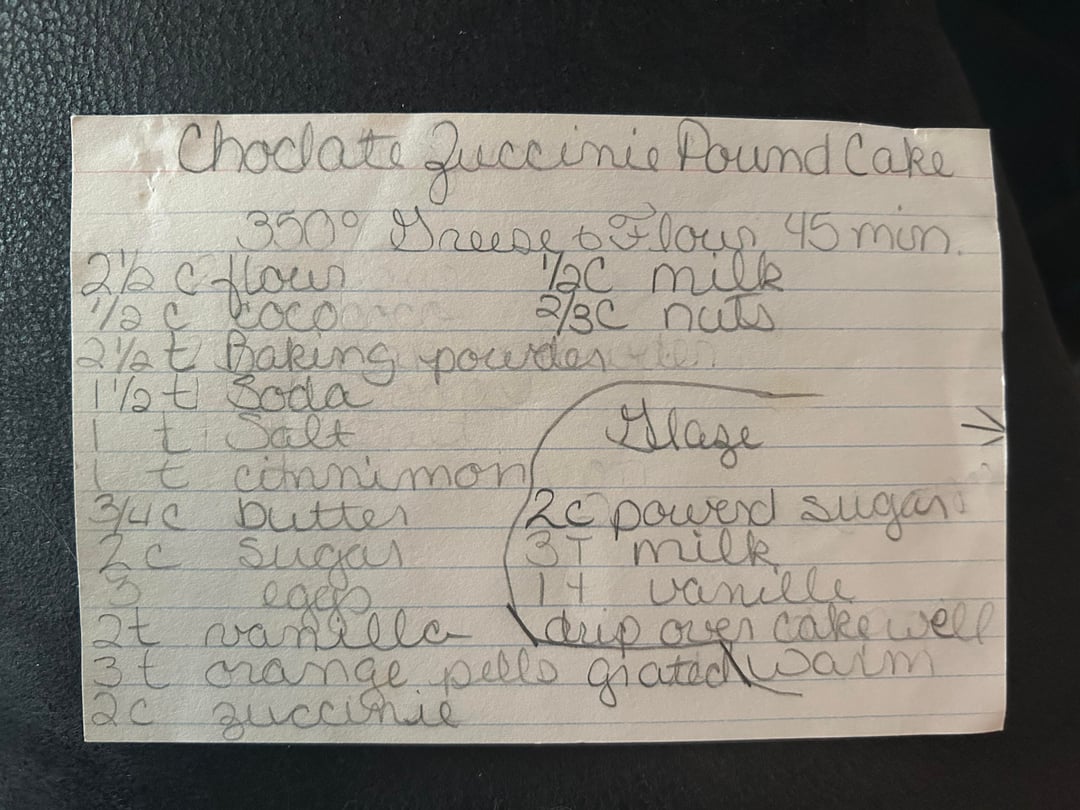 Choclate Zuccinie Pound Cake
350° Greese & Flour 45 min.
2 1/2 c flour
1/2 c coco
2 1/2 t Baking powder
1 1/2 t Soda
1 t Salt
1 t cinnimon
3/4 c butter
2c sugar
3 eggs
2t vanilla
3t orange pells grated
2c zuccinie
1/2C milk
2/3C nuts
Glaze
2c powerd sugar
3T milk
1t vanille
drip over cake well
warm